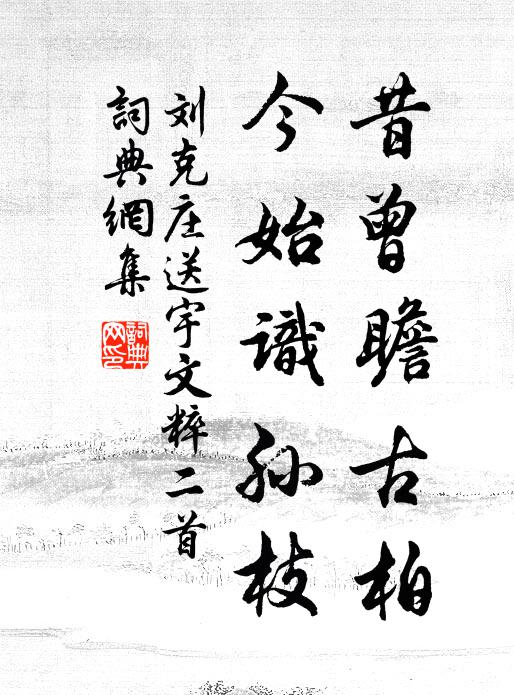 昔曾瞻古柏
今始識孙枝
刘克庄送宇文粹二首
詞典網集
詞典
网印